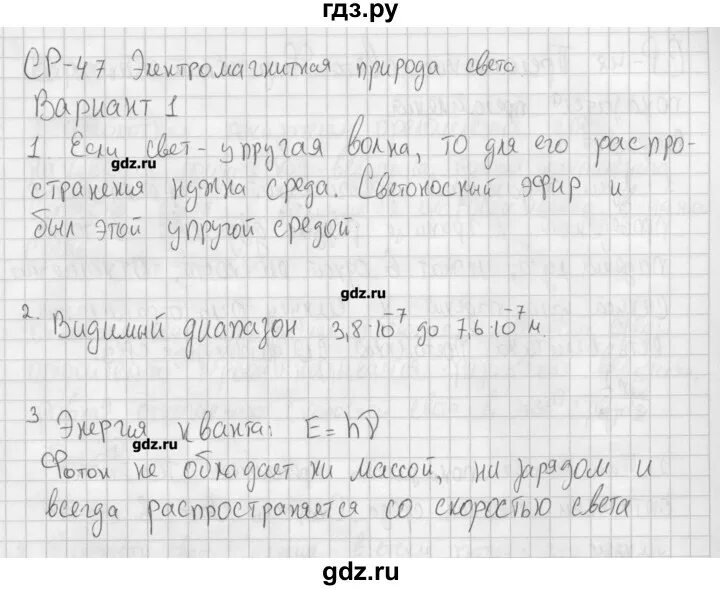 гдз.ру
СР-47 Электромагнитная природа света
Вариант 1
1 Если свет - упругая волна, то для его распро-
gdz.ru
странения нужна среда. Светоносный эфир и
был этой упругой средой
gdz.ru
2. Видимый диапазон 3,8·10⁻⁷ до 7,6·10⁻⁷ м.
3 Энергия кванта: E = hν
gdz.ru
Фотон не обладает ни массой, ни зарядом и
всегда распространяется со скоростью света
gdz.ru